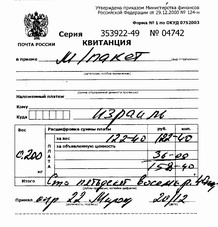 Утверждена приказом Министерства финансов
Российской Федерации от 29.12.2000 № 124-н
Форма № 1 по ОКУД 0752003
ПОЧТА РОССИИ
Серия 353922-49 № 04742
КВИТАНЦИЯ
в приеме М/пакет
Наложенный платеж
Куда Израиль
Кому
Вес Расшифровка суммы платы руб. коп.
с.200 за вес 122-40 122-40
за объявленную ценность
36-00
158-40
Сто пятьдесят восемь р. 40
Принял опр. 22 20/12